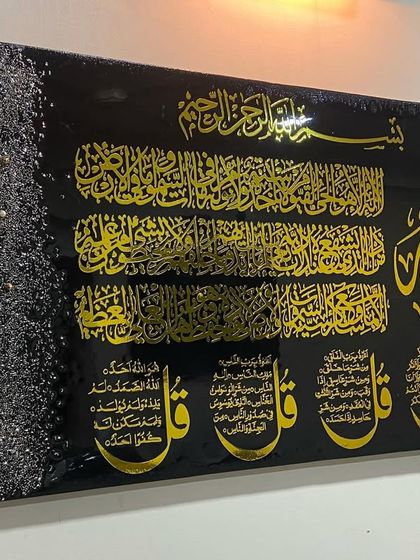 بِسْمِ اللَّهِ الرَّحْمَٰنِ الرَّحِيمِ
اللَّهُ لَا إِلَٰهَ إِلَّا هُوَ الْحَيُّ الْقَيُّومُ لَا تَأْخُذُهُ سِنَةٌ وَلَا نَوْمٌ لَهُ مَا فِي السَّمَاوَاتِ وَمَا فِي الْأَرْضِ
مَنْ ذَا الَّذِي يَشْفَعُ عِنْدَهُ إِلَّا بِإِذْنِهِ يَعْلَمُ مَا بَيْنَ أَيْدِيهِمْ وَمَا خَلْفَهُمْ وَلَا يُحِيطُونَ بِشَيْءٍ مِنْ عِلْمِهِ
إِلَّا بِمَا شَاءَ وَسِعَ كُرْسِيُّهُ السَّمَاوَاتِ وَالْأَرْضَ وَلَا يَئُودُهُ حِفْظُهُمَا وَهُوَ الْعَلِيُّ الْعَظِيمُ
قُلْ
أَعُوذُ بِرَبِّ الْفَلَقِ
مِنْ شَرِّ مَا خَلَقَ
وَمِنْ شَرِّ غَاسِقٍ إِذَا
وَقَبَ وَمِنْ شَرِّ النَّفَّاثَاتِ
فِي الْعُقَدِ وَمِنْ شَرِّ
حَاسِدٍ إِذَا حَسَدَ
قُلْ
أَعُوذُ بِرَبِّ النَّاسِ
مَلِكِ النَّاسِ إِلَٰهِ
النَّاسِ مِنْ شَرِّ الْوَسْوَاسِ
الْخَنَّاسِ الَّذِي يُوَسْوِسُ
فِي صُدُورِ النَّاسِ مِنَ
الْجِنَّةِ وَالنَّاسِ
قُلْ
هُوَ اللَّهُ أَحَدٌ
اللَّهُ الصَّمَدُ لَمْ
يَلِدْ وَلَمْ يُولَدْ
وَلَمْ يَكُنْ لَهُ
كُفُوًا أَحَدٌ